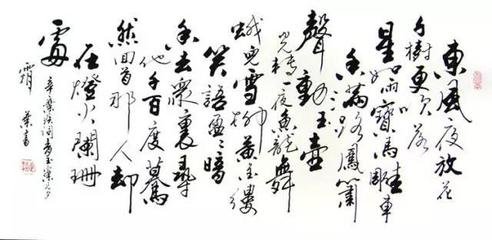 東風夜放花
千樹更吹落
星如雨寶馬雕車
香滿路鳳簫
聲動玉壺
光轉一夜魚龍舞
蛾兒雪柳黃金縷
笑語盈〻暗
香去眾裏尋
他千百度驀
然回首那人却
在燈火闌珊
處
辛棄疾詞青玉案元夕